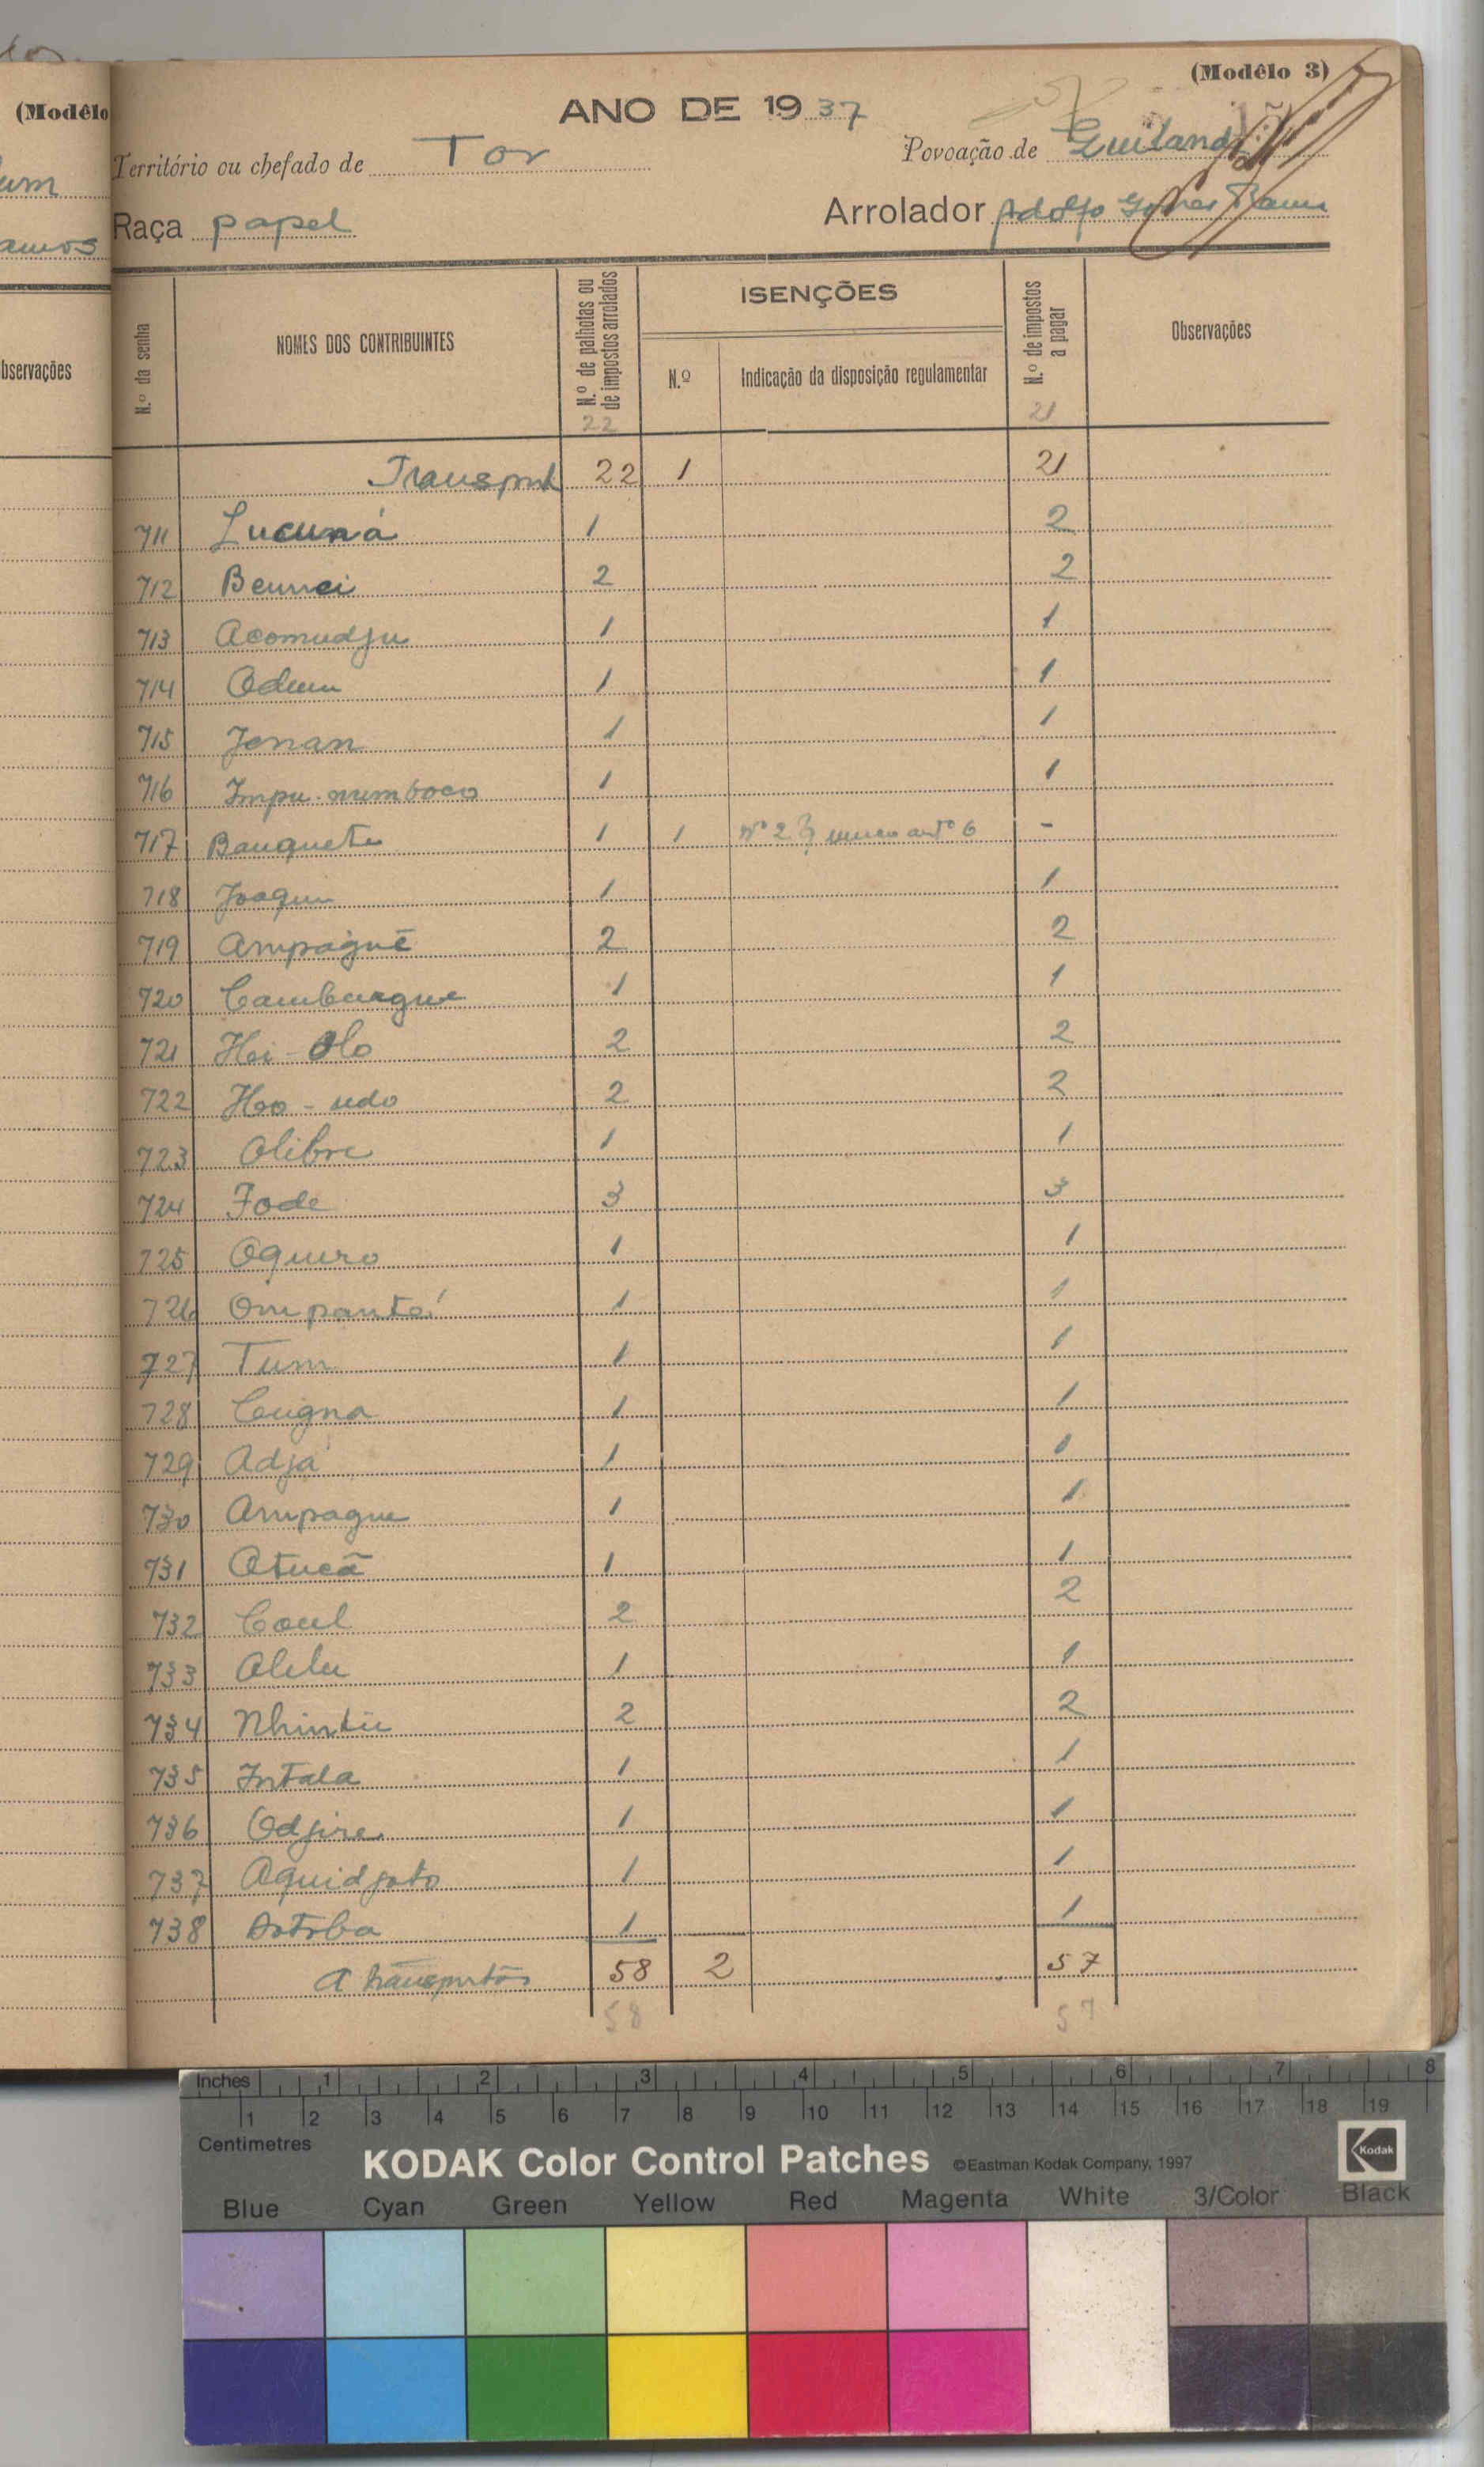 (Modêlo 3)
(Modêlo
ANO DE 1937
Território ou chefado de Tor
Povoação de
Raça papel
Arrolador Adolfo Gomes Ramos
amos
N.º da senha
NOMES DOS CONTRIBUINTES
N.º de palhotas ou de impostos arrolados
ISENÇÕES
N.º
Indicação da disposição regulamentar
N.º de impostos a pagar
Observações
bservações
22 21
Transporte 22 1 21
711 Lucuná 1 2
712 2 2
713 Acomudju 1 1
714 1 1
715 Jonan 1 1
716 Impu-numboco 1 1
717 Banquete 1 1 Nº 2 artº 6 -
718 Joaquim 1 1
719 Ampaguē 2 2
720 Cambangue 1 1
721 Hei-Olo 2 2
722 Hoo-udo 2 2
723 Olibre 1 1
724 Fode 3 3
725 Oquiro 1 1
726 Ompanteí 1 1
727 Tum 1 1
728 Cugna 1 1
729 Adjá 1 1
730 Ampague 1 1
731 Atucã 1 1
732 Coul 2 2
733 1 1
734 2 2
735 Intala 1 1
736 Odjire 1 1
737 Aquidjoto 1 1
738 1 1
A transportar 58 2 57
58 57
Inches 1 2 3 4 5 6 7 8
1 2 3 4 5 6 7 8 9 10 11 12 13 14 15 16 17 18 19
Centimetres
KODAK Color Control Patches ©Eastman Kodak Company, 1997 Kodak
Blue Cyan Green Yellow Red Magenta White 3/Color Black